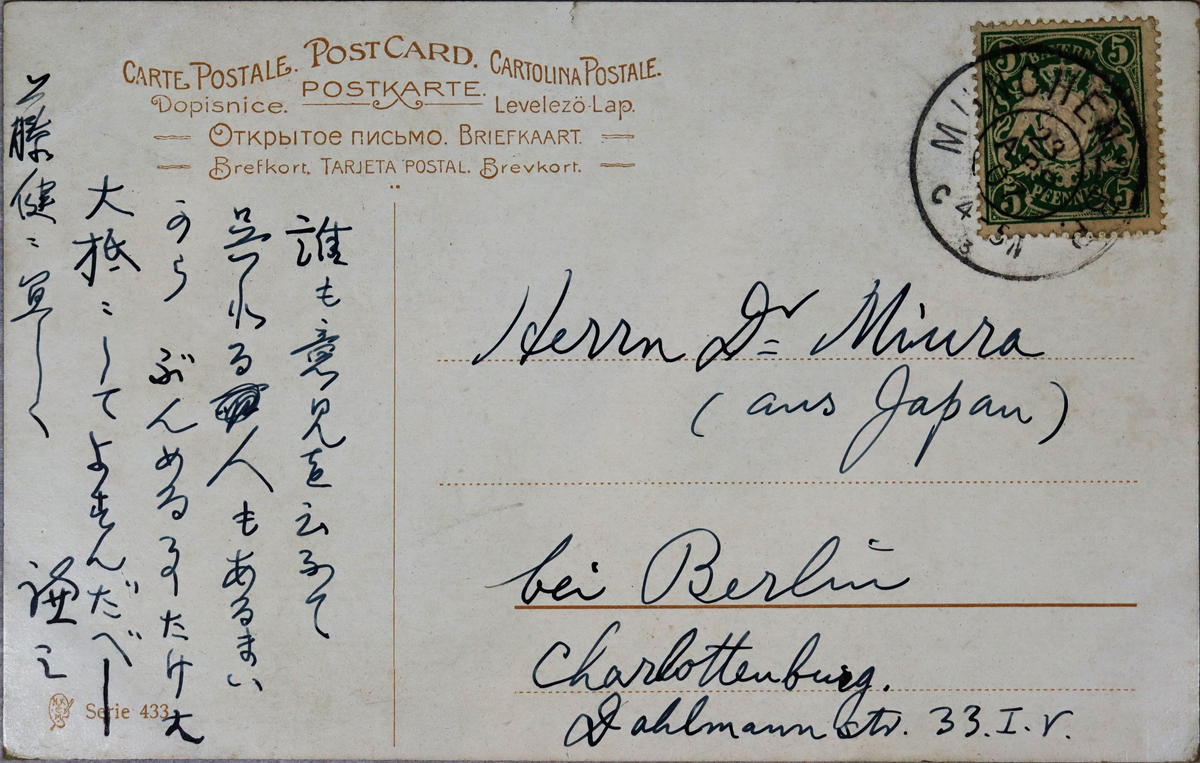 CARTE POSTALE. POST CARD. CARTOLINA POSTALE.
Dopisnice. POSTKARTE. Levelező-Lap.
Открытое письмо. BRIEFKAART.
Brefkort. TARJETA POSTAL. Brevkort.
5 BAYERN 5
5 PFENNIG 5
MÜNCHEN
23 APR
4-5N
C 3
Herrn Dr Miura
(aus Japan)
bei Berlin
Charlottenburg.
Dahlmann str. 33.I.r.
誰も意見を云ふて
呉れる人もあるまい
から ぶんめる事たけ大
大抵ニしてよすんだべー
藤健ニ宜しく
謙三
Serie 433